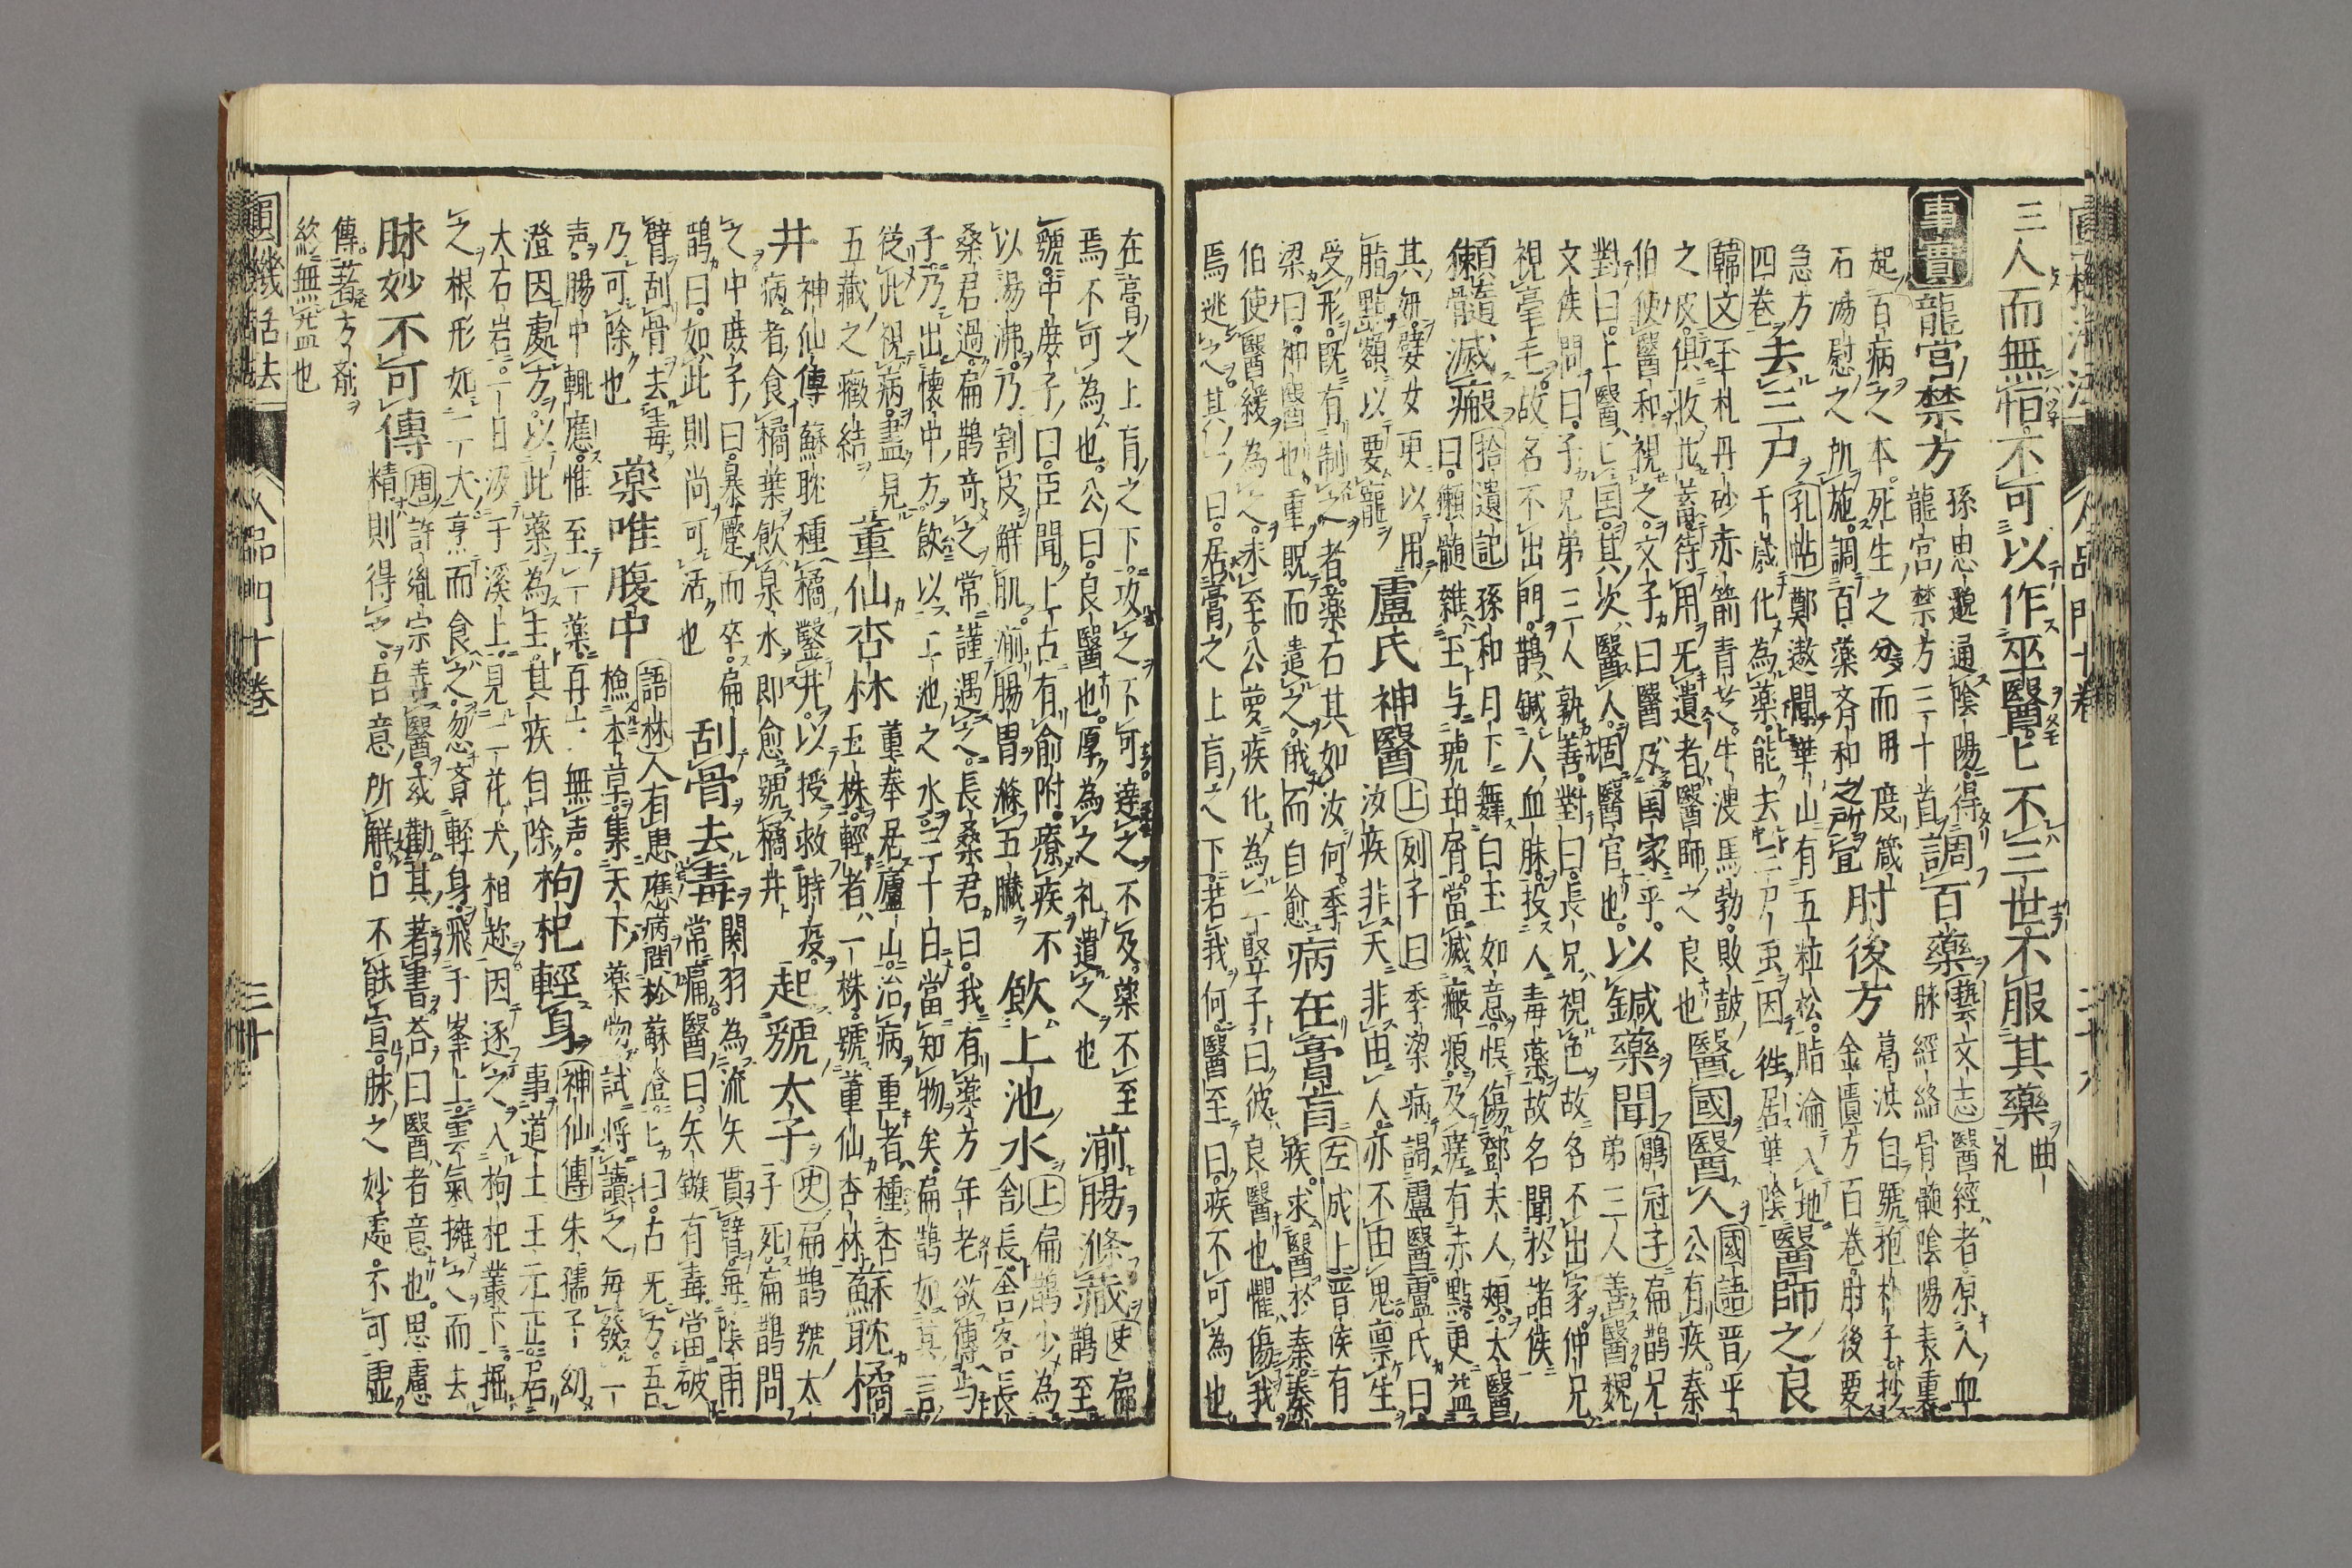 三人而無恒不可以作巫醫匕不三世不服其藥曲礼
事實
龍宮禁方 孫思邈通陰陽得龍宮禁方三十首 調百藥 藝文志 醫經者原人血脉經絡骨髄陰陽表裏
起百病之本死生之分而用度箴石湯慰之所施調百藥斉和之所宜 肘後方 葛洪自號抱朴子抄金匱方百卷肘後要
急方四卷 去三尸 孔帖 鄭遨聞華山有五粒松脂淪入地千歳化為藥能去三尸䖝因徙居華陰 醫師之良
韓文 玉札丹砂赤箭青芝牛溲馬勃敗鼓之皮俱收並蓄待用无遺者醫師之良也 醫國醫人 國語 晋平公有疾秦
伯使醫和視之文子曰醫及国家乎對曰上醫匕国其次醫人固醫官也 以鍼藥聞 鶡冠子 扁鵲兄弟三人善醫魏
文侯問曰子兄弟三人孰善對曰長兄視色故名不出家仲兄視毫毛故名不出門鵲鍼人血脉投人毒藥故名聞於諸侯
獺髓滅瘢 拾遺記 孫和月下舞白玉如意悞傷鄧夫人頰太醫曰獺髄雜玉与琥珀屑當滅瘢痕及瘥有赤點更益
其妍嬖女更以用脂點額以要寵 盧氏神醫 上 列子曰 季梁病謁盧醫盧氏曰汝疾非天非由人亦不由鬼禀生
受形既有制之者藥石其如汝何季梁曰神醫也重貺而遣之俄而自愈 病在膏肓 左成上 晋侯有疾求醫於秦秦
伯使醫緩為之未至公夢疾化為二竪子曰彼良醫也懼傷我
焉逃之其一曰居膏之上肓之下若我何醫至曰疾不可為也
在膏之上肓之下攻之不可達之不及藥不至焉不可為也公曰良醫也厚為之礼遣之也 湔腸滌藏 史 扁鵲至
虢中庶子曰臣聞上古有俞附療疾不以湯沸乃割皮解肌湔腸胃滌五臓 飲上池水 上 扁鵲少為舎長舎客長
桑君過扁鵲竒之常謹遇之長桑君曰我有藥方年老欲傳与子乃出懐中方飲以上池之水三十日當知物矣扁鵲如其言
從此視病盡見五藏之癥結 董仙杏林 董奉居廬山治病重者種杏五株輕者一株號董仙杏林 蘇耽橘
井 神仙傳 蘇耽種橘鑿井以授救時疫病者食橘葉飲泉水即愈號橘井 起虢太子 史 扁鵲虢太子死扁鵲問
之中庶子曰暴蹷而卒扁鵲曰如此則尚可活也 刮骨去毒 関羽為流矢貫臂每陰雨常痛醫曰矢鏃有毒當破
臂刮骨去毒乃可除也 藥唯腹中 語林 人有患應病問於蘇澄匕曰古无方吾撿本草集天下藥物試将讀之每發一
声腸中輒應惟至一藥再三無声澄因處方以此藥為主其疾自除 枸杞輕身 神仙傳 朱孺子幼事道士王元正居
大石岩一日汲于溪上見二花犬相趂因逐之入枸杞叢下掘之根形如二犬烹而食之忽竟輕身飛于峯上雲氣擁之而去
脉妙不可傳 唐 許胤宗善醫或勸其著書荅曰醫者意也思慮精則得之吾意所解口不能宣脉之妙處不可虛
傳著方剤
欲無益也
圓機活法 人品門十巻 三十